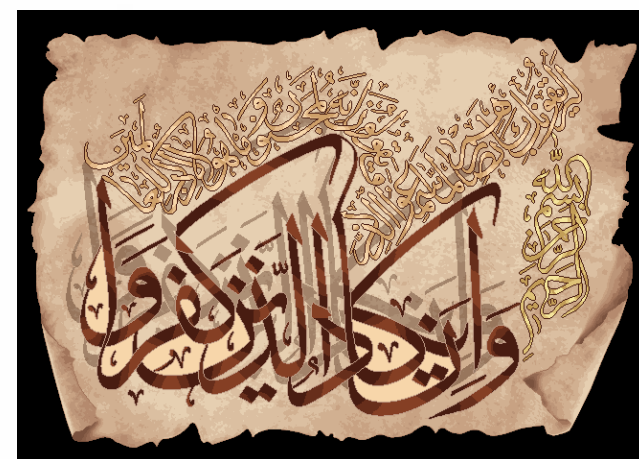 بسم الله الرحمن الرحيم
وان يكاد الذين كفروا
ليزلقونك بابصارهم لما سمعوا الذكر
ويقولون انه لمجنون وما هو الا ذكر للعالمين